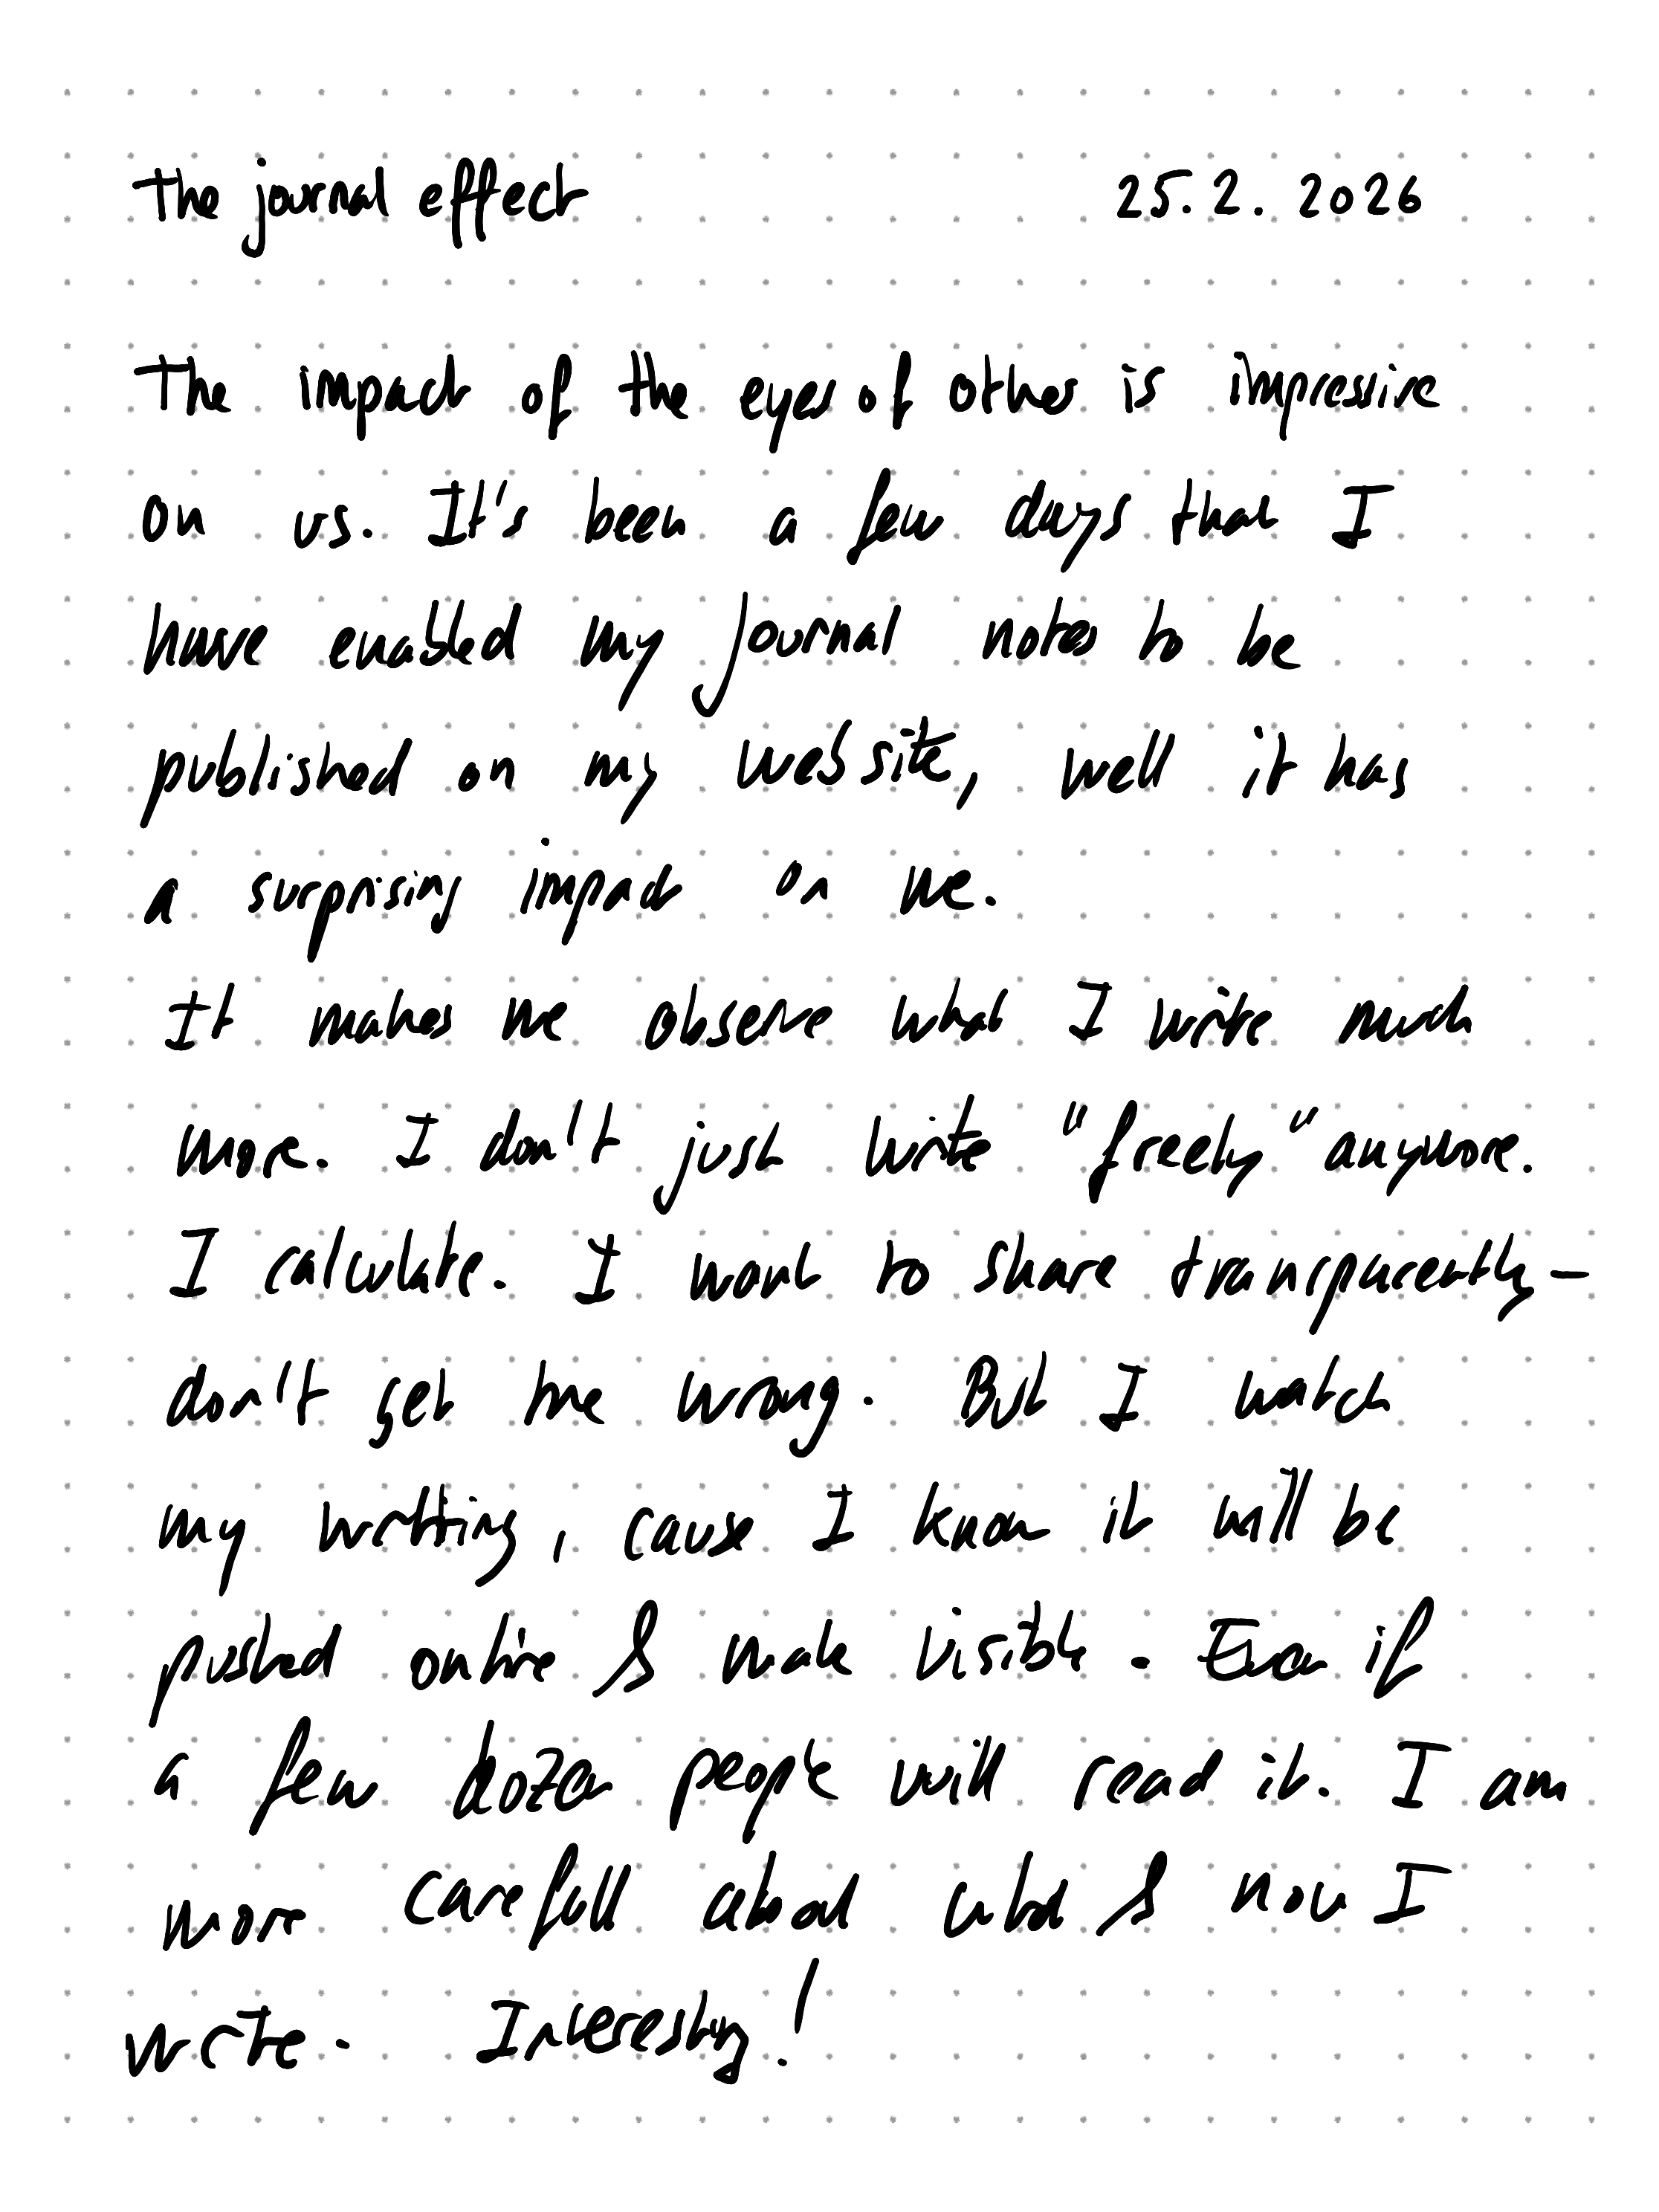 The journal effect 25.2.2026
The impact of the eyes of others is impressive
on us. It's been a few days that I
have enabled my journal notes to be
published on my website, well it has
a surprising impact on me.
It makes me observe what I write much
more. I don't just write "freely" anymore.
I calculate. I want to share transparently -
don't get me wrong. But I watch
my writting, cause I know it will be
pushed online & make visible. Even if
a few dozen people will read it. I am
more carefull about what & how I
write. Interesting!